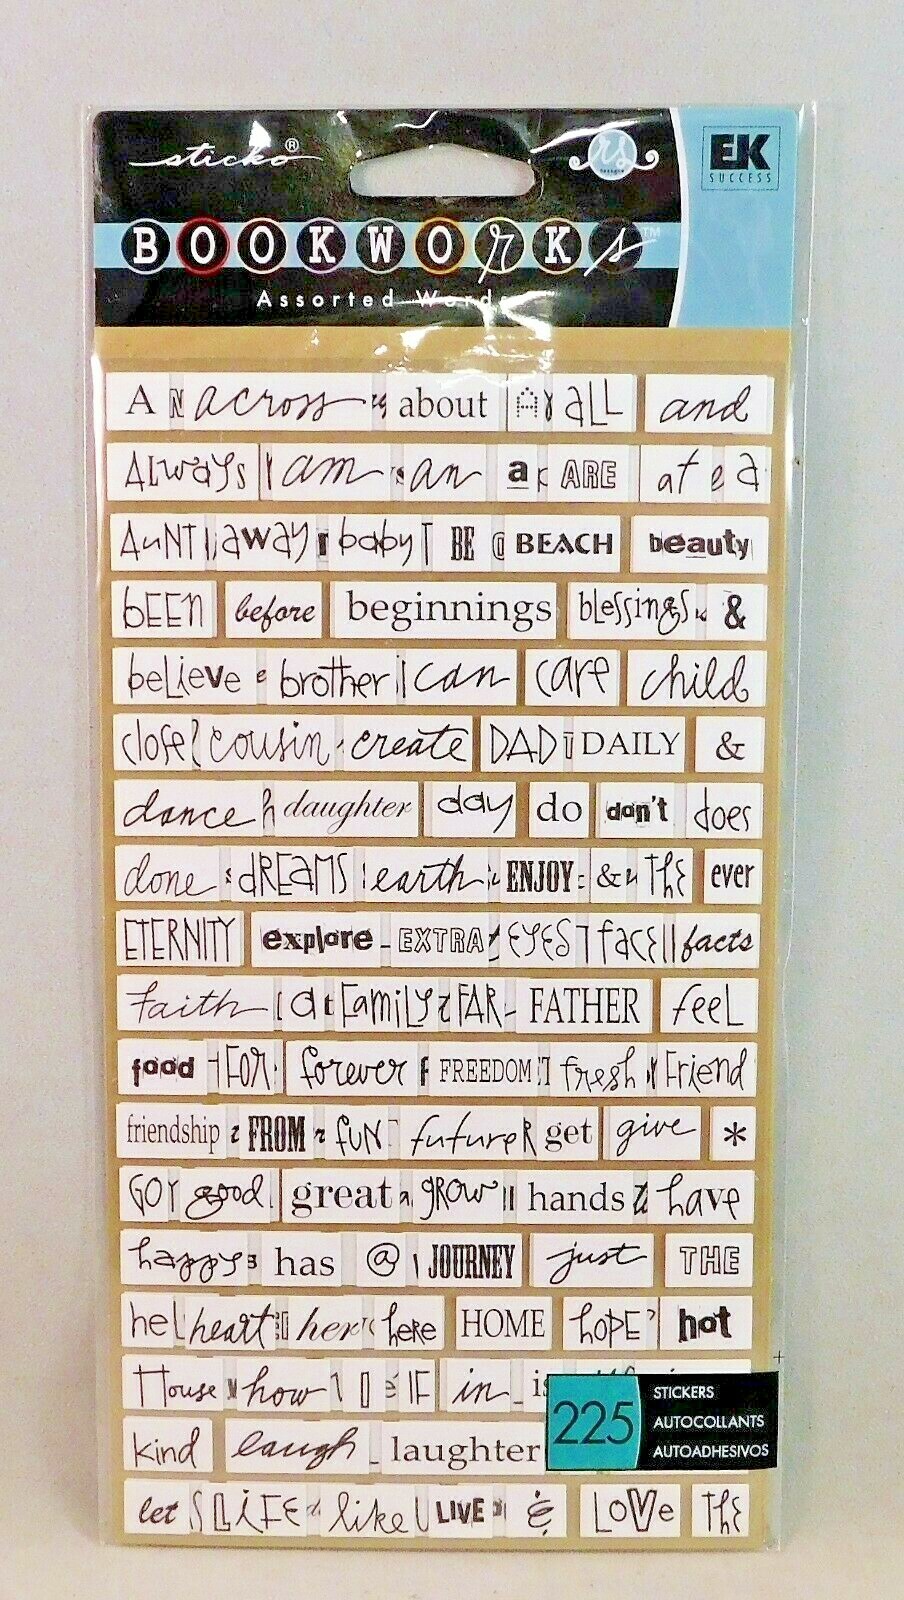 sticko®
rs
EK
SUCCESS
BOOKWORKs™
Assorted Words
A across about ALL and
ALwAYS am an a ARE at a
AuNT away baby BE BEACH beauty
bEEN before beginnings blessings &
beLieve brother can care child
close cousin create DAD DAILY &
dance daughter day do don't does
done dREAMS earth ENJOY & THE ever
ETERNITY explore EXTRA EYES face facts
faith a FamiLy FAR FATHER feeL
food FOR forever FREEDOM fresh Friend
friendship FROM fuN future get give *
GO good great grow hands have
happy has @ JOURNEY just THE
he heart her here HOME hOPE hot
House how IF in is
kind laugh laughter
let LiFE like LIVE & LOVe The
225 STICKERS
AUTOCOLLANTS
AUTOADHESIVOS